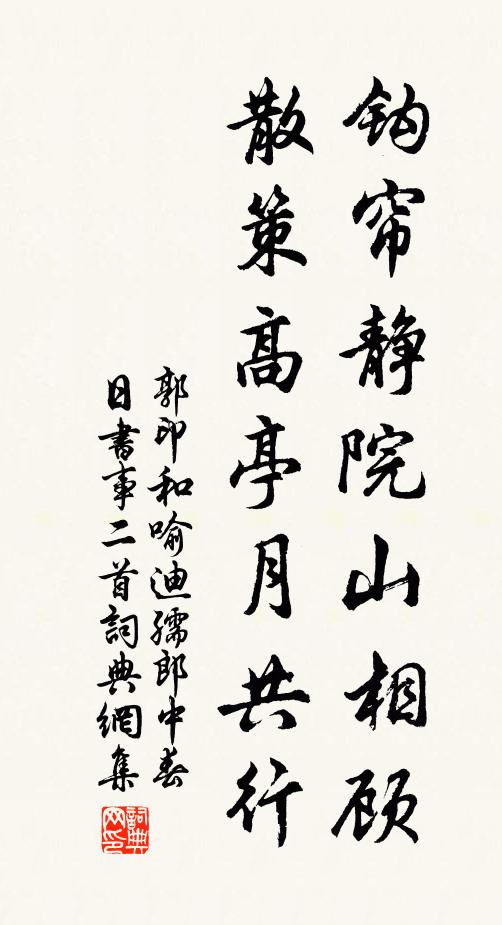 钩帘静院山相顾
散策高亭月共行
郭印和喻迪孺郎中春
日書事二首詞典網集
詞典网印